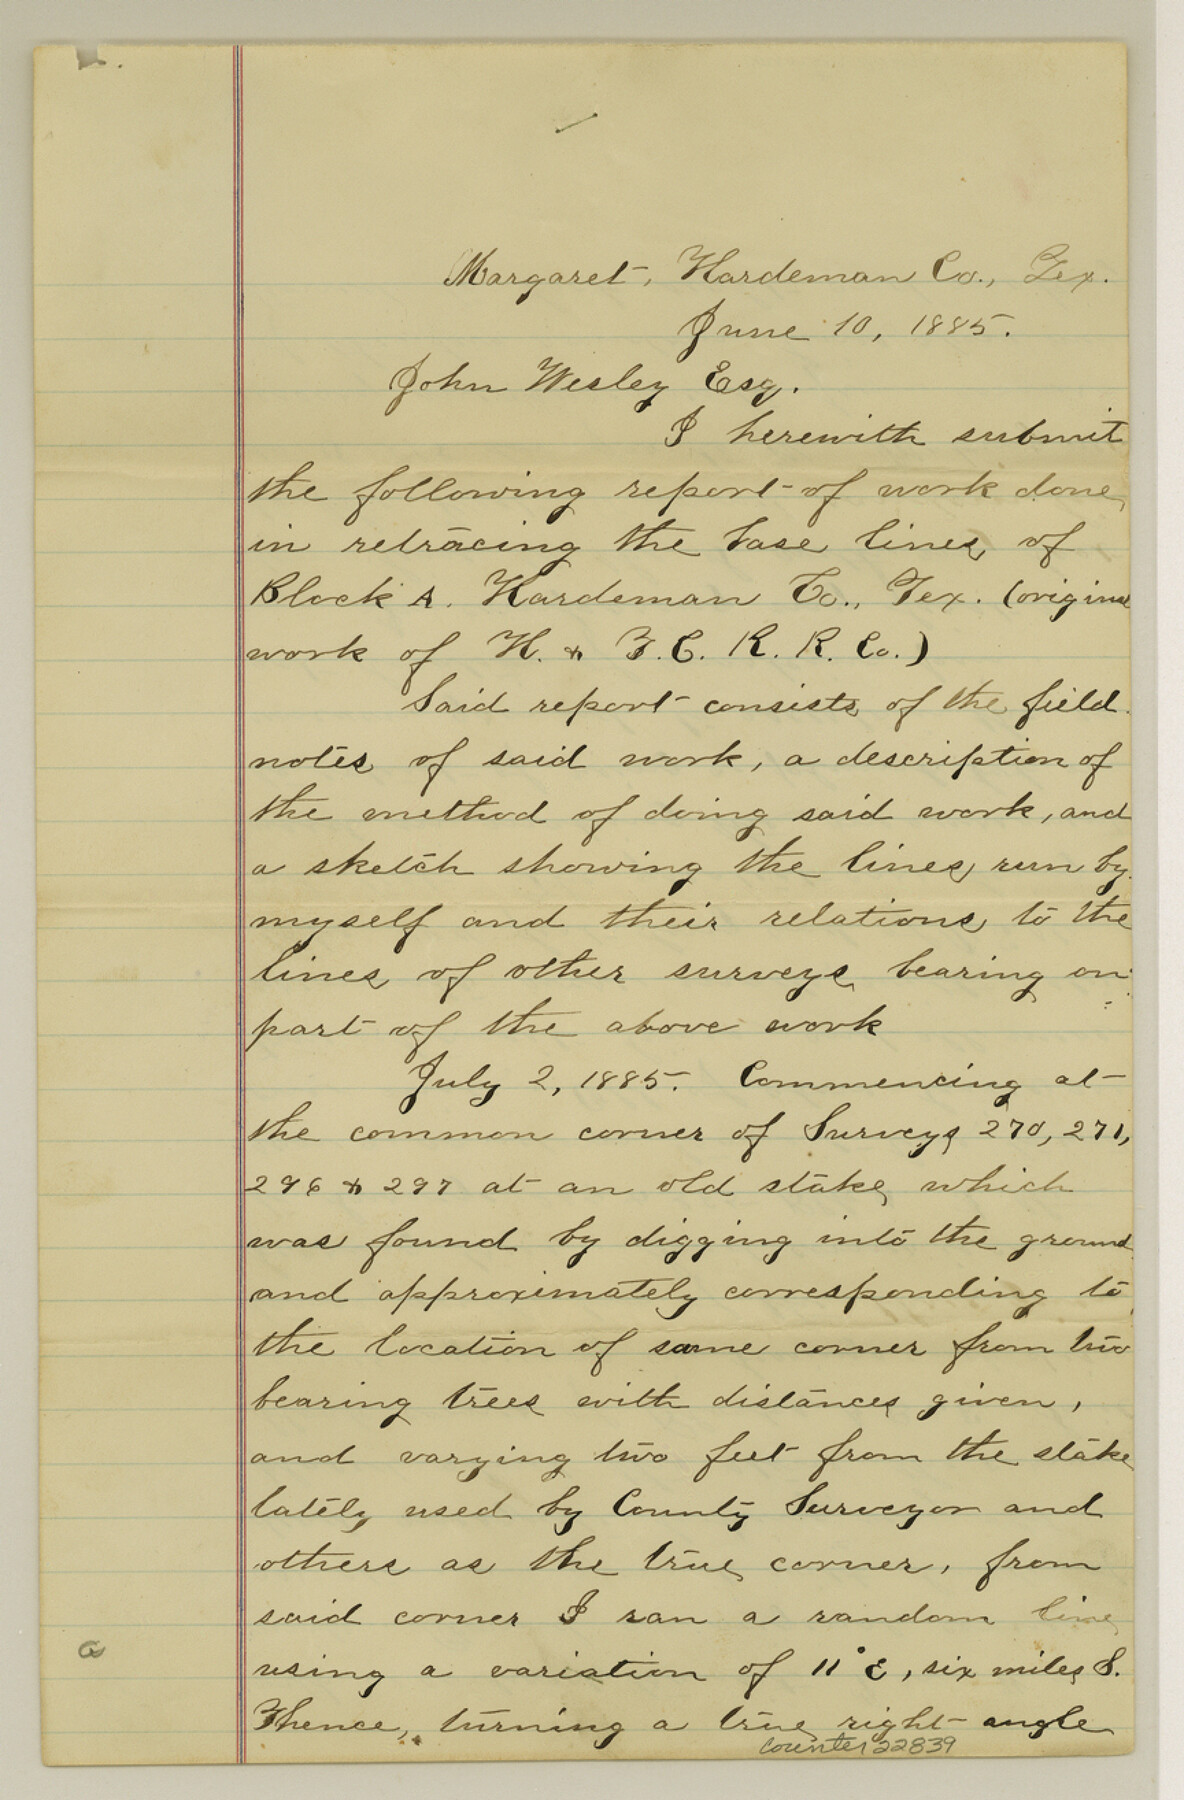 Margaret, Hardeman Co., Tex.
June 10, 1885.
John Wesley Esq.
I herewith submit
the following report of work done
in retracing the base lines of
Block A. Hardeman Co., Tex. (original
work of H. & T. C. R. R. Co.)
Said report consists of the field
notes of said work, a description of
the method of doing said work, and
a sketch showing the lines run by
myself and their relations to the
lines of other surveys bearing on
part of the above work
July 2, 1885. Commencing at
the common corner of Surveys 270, 271,
296 & 297 at an old stake which
was found by digging into the ground
and approximately corresponding to
the location of same corner from two
bearing trees with distances given,
and varying two feet from the stake
lately used by County Surveyor and
others as the true corner, from
said corner I ran a random line
using a variation of 11° E, six miles S.
Thence, turning a true right angle
counter 22839